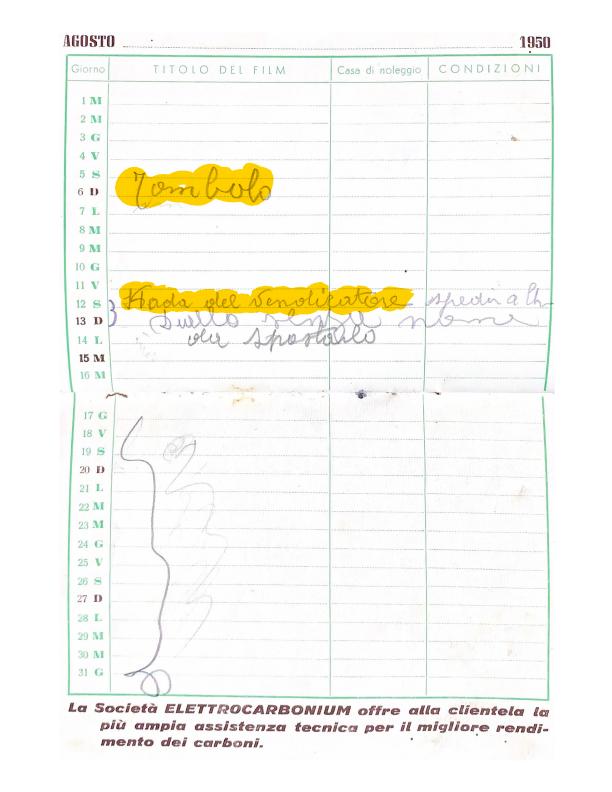 AGOSTO 1950
Giorno TITOLO DEL FILM Casa di noleggio CONDIZIONI
1 M
2 M
3 G
4 V
5 S
6 D Tombolo
7 L
8 M
9 M
10 G
11 V
12 S del vendicatore
13 D Duello senza nome
14 L da spostarlo
15 M
16 M
17 G
18 V
19 S
20 D
21 L
22 M
23 M
24 G
25 V
26 S
27 D
28 L
29 M
30 M
31 G
La Società ELETTROCARBONIUM offre alla clientela la
più ampia assistenza tecnica per il migliore rendi-
mento dei carboni.